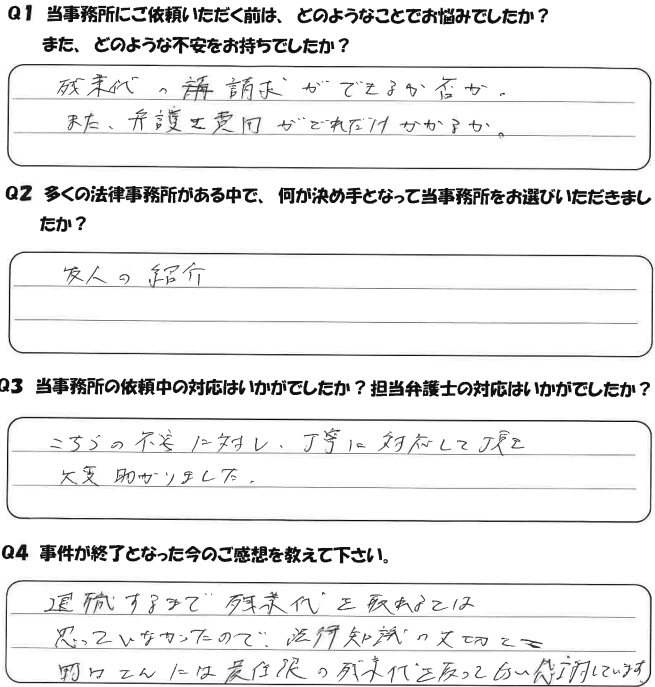 Q1 当事務所にご依頼いただく前は、どのようなことでお悩みでしたか？
また、どのような不安をお持ちでしたか？
残業代の請求ができるか否か。
また、弁護士費用がどれだけかかるか。
Q2 多くの法律事務所がある中で、何が決め手となって当事務所をお選びいただきまし
たか？
友人の紹介
Q3 当事務所の依頼中の対応はいかがでしたか？担当弁護士の対応はいかがでしたか？
こちらの不安に対し、丁寧に対応して頂き
大変助かりました。
Q4 事件が終了となった今のご感想を教えて下さい。
退職するまで残業代を取れるとは
思っていなかったので、法律知識の大切さと
野口さんには最大限の残業代を取って頂い感謝しています